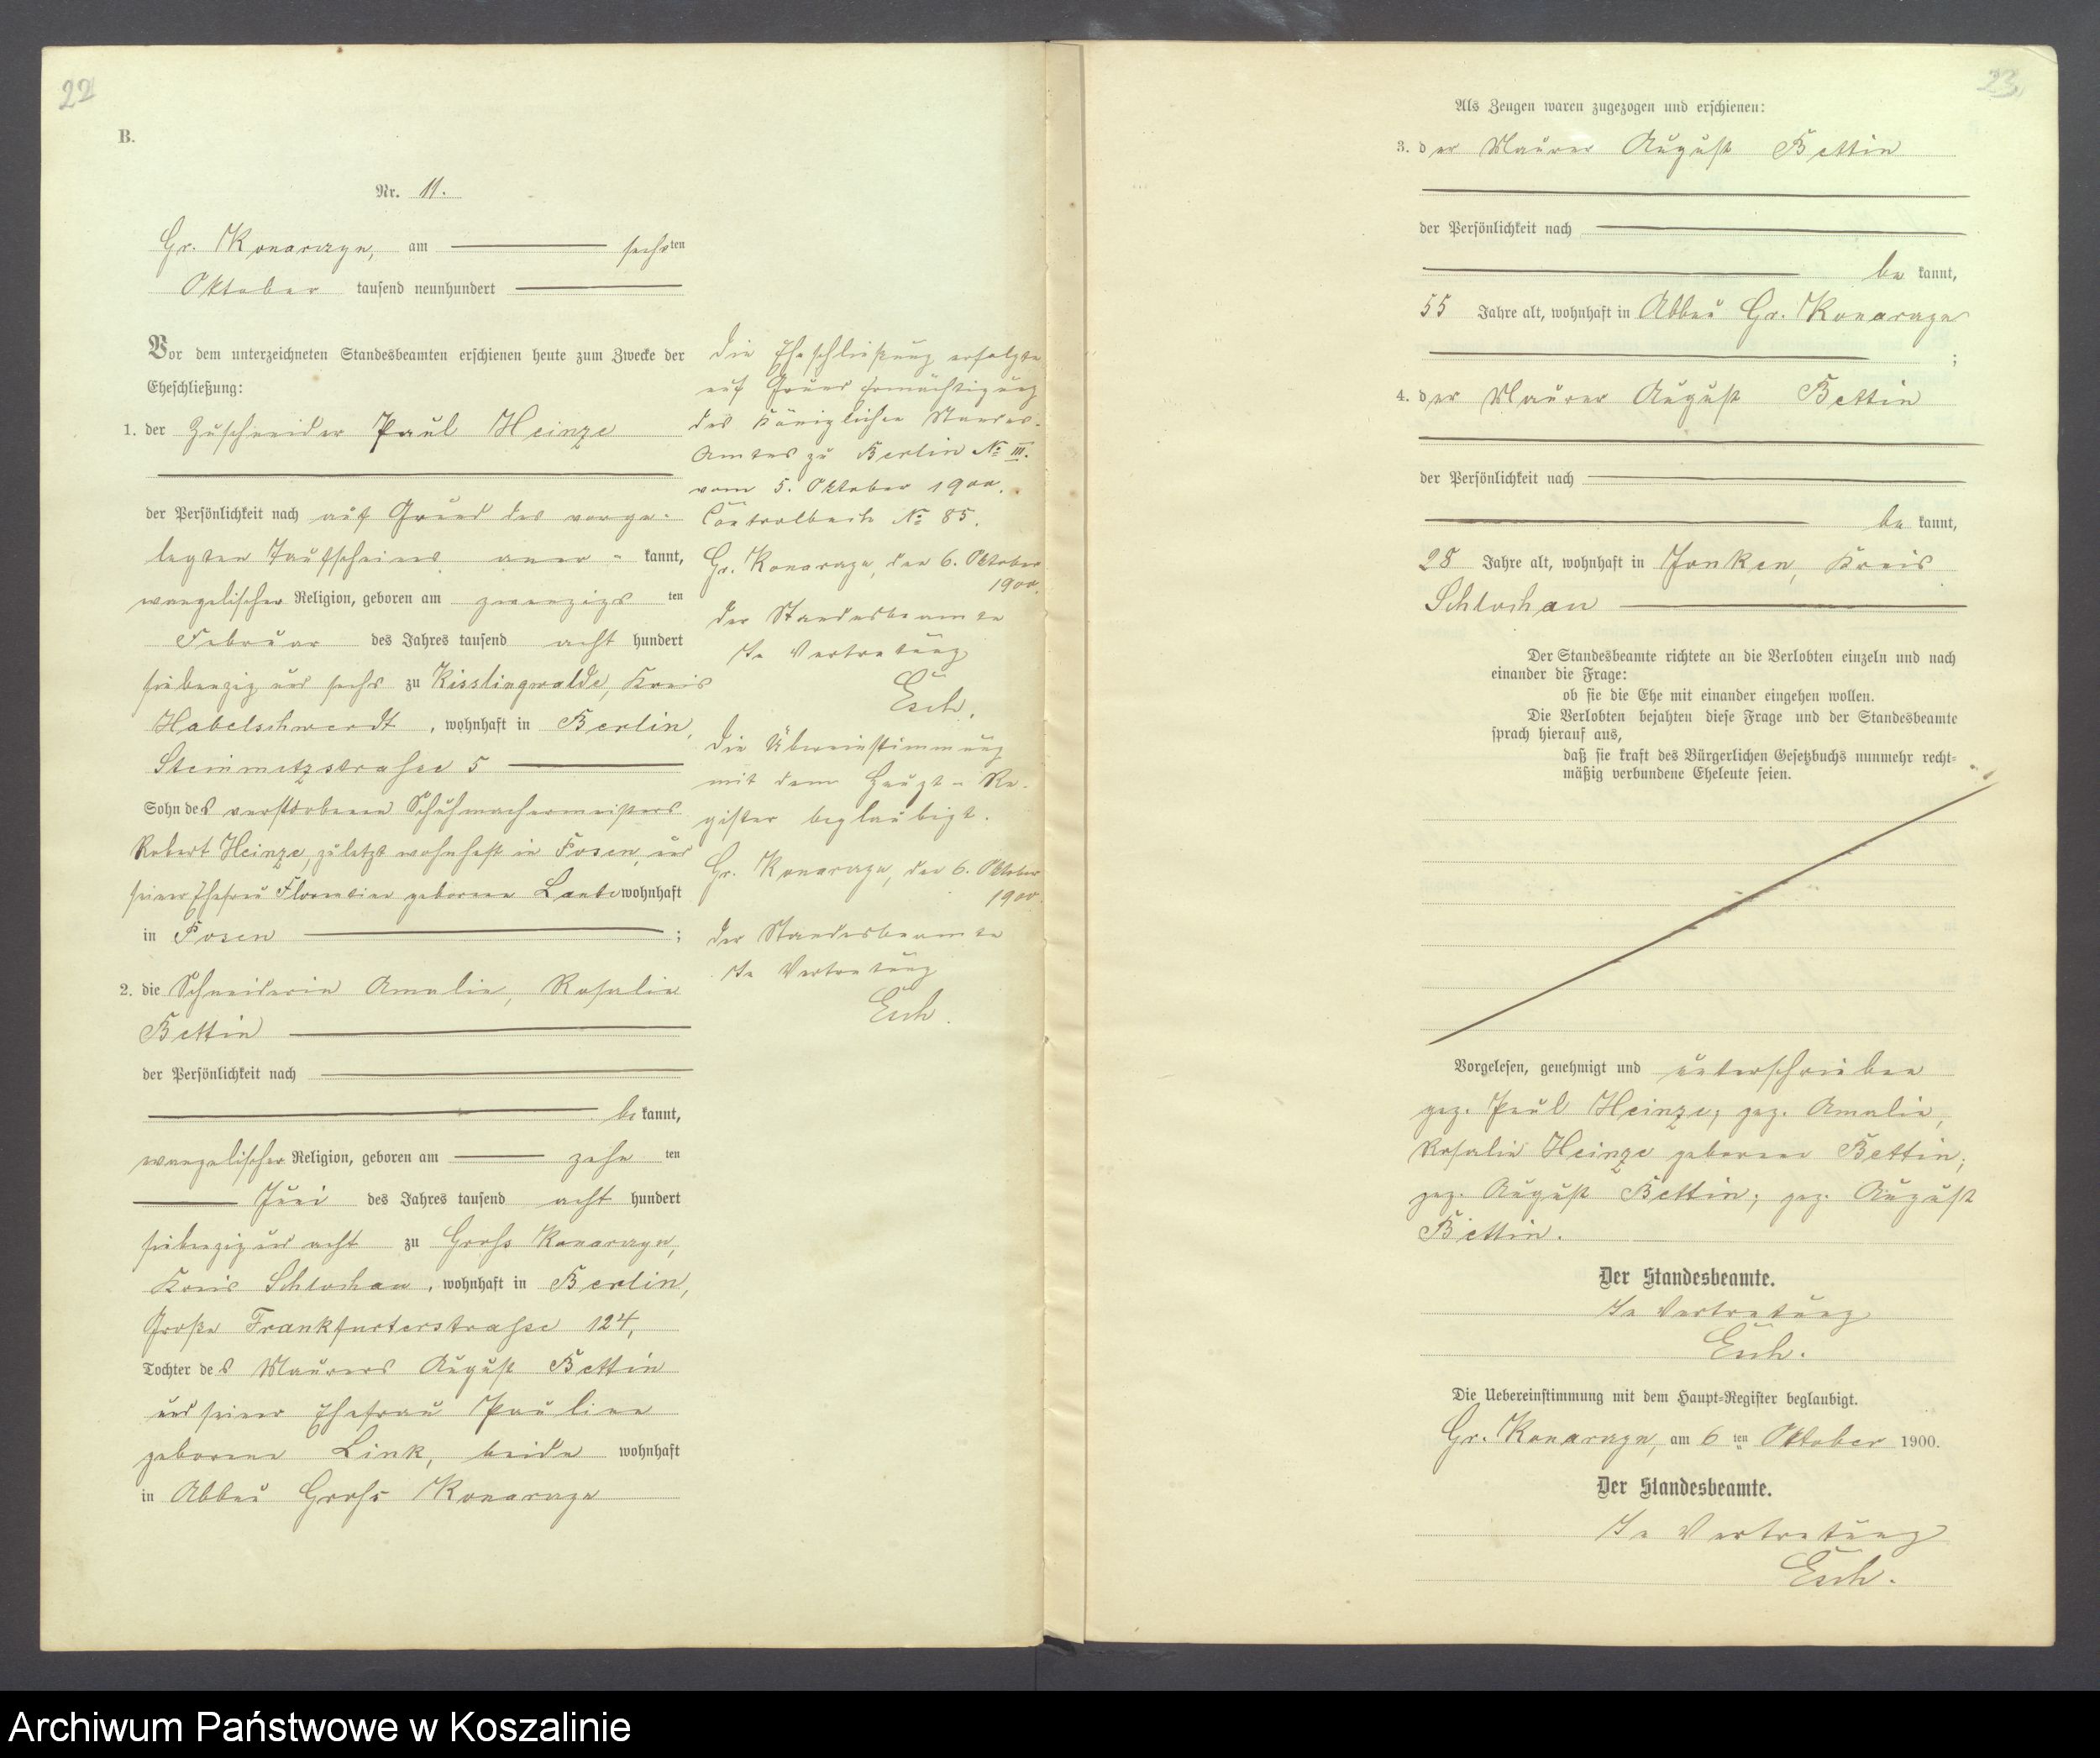 22
B.
Nr. 11.
Gr. Konarzyn, am sechsten
Oktober tausend neunhundert
Vor dem unterzeichneten Standesbeamten erschienen heute zum Zwecke der
Eheschließung:
1. der Zuschneider Paul Heinze
der Persönlichkeit nach auf Grund des vorge-
legten Taufscheines aner- kannt,
evangelischer Religion, geboren am zwanzigsten
Februar des Jahres tausend acht hundert
siebenzig und sechs zu Kisslingswalde, Kreis
Habelschwerdt, wohnhaft in Berlin,
Steinmetzstrasse 5
Sohn des verstorbenen Schuhmachermeisters
Robert Heinze, zuletzt wohnhaft in Posen, und
seiner Ehefrau Florentine geborene wohnhaft
in Posen ;
2. die Schneiderin Amalie, Rosalie
Bettin
der Persönlichkeit nach
bekannt,
evangelischer Religion, geboren am zehnten
Juni des Jahres tausend acht hundert
siebenzig und acht zu Gross Konarzyn,
Kreis Schlochau, wohnhaft in Berlin,
Große Frankfurterstrasse 124,
Tochter des Maurers August Bettin
und seiner Ehefrau Pauline
geborene Link, beide wohnhaft
in Abbau Gross Konarzyn
Die Eheschließung erfolgte
auf Grund Ermächtigung
des Königlichen Standes-
Amtes zu Berlin No III.
vom 5. Oktober 1900.
No 85.
Gr. Konarzyn, den 6. Oktober
1900.
Der Standesbeamte
In Vertretung
Esch.
Die Übereinstimmung
mit dem Haupt-Re-
gister beglaubigt.
Gr. Konarzyn, den 6. Oktober
1900.
Der Standesbeamte
In Vertretung
Esch.
23.
Als Zeugen waren zugezogen und erschienen:
3. der Maurer August Bettin
der Persönlichkeit nach
bekannt,
55 Jahre alt, wohnhaft in Abbau Gr. Konarzyn
;
4. der Maurer August Bettin
der Persönlichkeit nach
bekannt,
28 Jahre alt, wohnhaft in Jonken, Kreis
Schlochau
Der Standesbeamte richtete an die Verlobten einzeln und nach
einander die Frage:
ob sie die Ehe mit einander eingehen wollen.
Die Verlobten bejahten diese Frage und der Standesbeamte
sprach hierauf aus,
daß sie kraft des Bürgerlichen Gesetzbuchs nunmehr recht-
mäßig verbundene Eheleute seien.
Vorgelesen, genehmigt und unterschrieben
gez. Paul Heinze; gez. Amalie,
Rosalie Heinze geborene Bettin;
gez. August Bettin; gez. August
Bettin.
Der Standesbeamte.
In Vertretung
Esch.
Die Uebereinstimmung mit dem Haupt-Register beglaubigt.
Gr. Konarzyn, am 6ten Oktober 1900.
Der Standesbeamte.
In Vertretung
Esch.
Archiwum Państwowe w Koszalinie